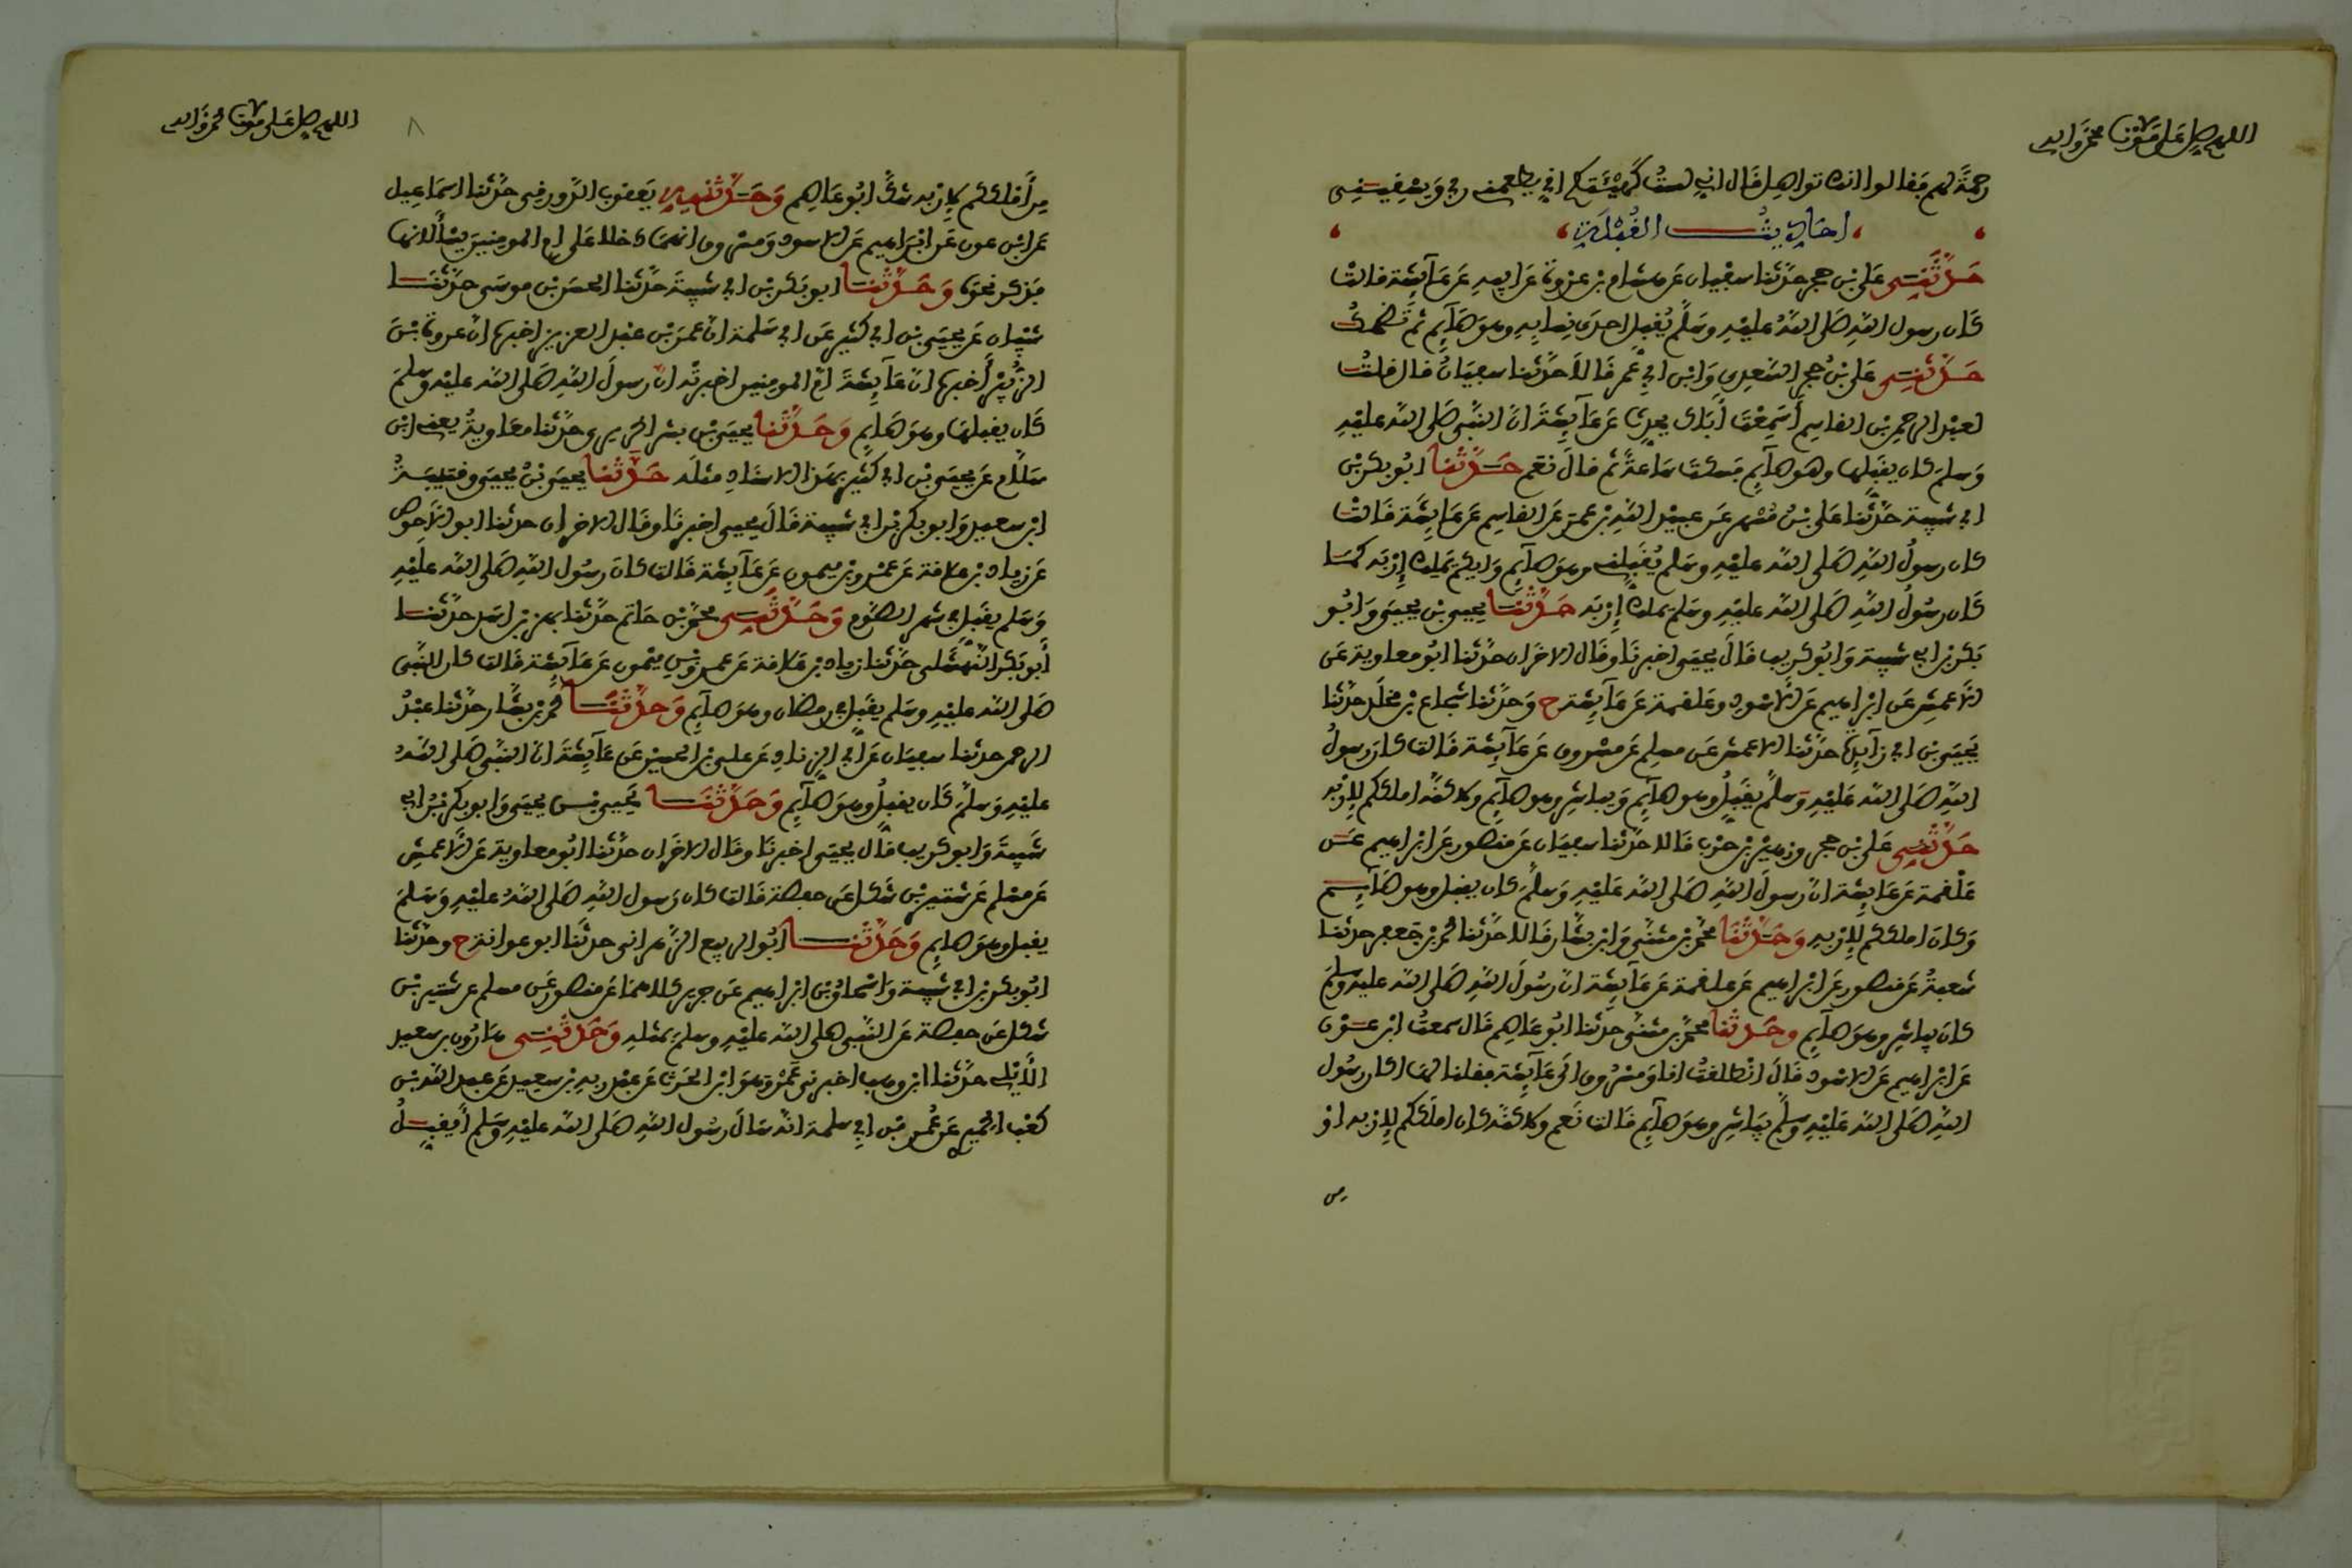 اللهم صل على سيدنا محمد وآله
رحمة لهم فقالوا انك تواصل قال اني لست كهيئتكم اني يطعمني ربي ويسقيني
احاديث القبلة
حدثني علي بن حجر حدثنا سفيان عن هشام بن عروة عن ابيه عن عائشة قالت
كان رسول الله صلى الله عليه وسلم يقبل احدى نسايه وهو صائم ثم تضحك
حدثني علي بن حجر السعدي وابن ابي عمر قالا حدثنا سفيان قال قلت
لعبد الرحمن بن القاسم أسمعت أباك يحدث عن عائشة ان النبي صلى الله عليه
وسلم كان يقبلها وهو صائم فسكت ساعة ثم قال نعم حدثنا ابو بكر بن
ابي شيبة حدثنا علي بن مسهر عن عبيد الله بن عمر عن القاسم عن عائشة قالت
كان رسول الله صلى الله عليه وسلم يقبلني وهو صائم وايكم يملك إربه كما
كان رسول الله صلى الله عليه وسلم يملك إربه حدثنا يحيى بن يحيى وابو
بكر بن ابي شيبة وابو كريب قال يحيى اخبرنا وقال الاخران حدثنا ابو معاوية عن
الأعمش عن ابراهيم عن الأسود وعلقمة عن عائشة ح وحدثنا شجاع بن مخلد حدثنا
يحيى بن ابي زائدة حدثنا الاعمش عن مسلم عن مسروق عن عائشة قالت كان رسول
الله صلى الله عليه وسلم يقبل وهو صائم ويباشر وهو صائم ولاكنه املككم لإربه
حدثني علي بن حجر وزهير بن حرب قالا حدثنا سفيان عن منصور عن ابراهيم عن
علقمة عن عايشة ان رسول الله صلى الله عليه وسلم كان يقبل وهو صائم
وكان املككم لإربه وحدثنا محمد بن مثنى وابن بشار قالا حدثنا محمد بن جعفر حدثنا
شعبة عن منصور عن ابراهيم عن علقمة عن عائشة ان رسول الله صلى الله عليه وسلم
كان يباشر وهو صائم وحدثنا محمد بن مثنى حدثنا ابو عاصم قال سمعت ابن عون
عن ابراهيم عن الاسود قال انطلقت انا ومسروق الى عائشة فقلنا لها اكان رسول
الله صلى الله عليه وسلم يباشر وهو صائم قالت نعم ولاكنه كان املككم لإربه او
من
اللهم صل على سيدنا محمد وآله
٨
من أملككم لإربه شك ابو عاصم وحدثنيه يعقوب الدورقي حدثنا اسماعيل
عن ابن عون عن ابراهيم عن الاسود ومسروق انهما دخلا على ام المومنين يسألانها
فذكر نحوه وحدثنا ابو بكر بن ابي شيبة حدثنا الحسن بن موسى حدثنا
شيبان عن يحيى بن ابي كثير عن ابي سلمة ان عمر بن عبد العزيز اخبره ان عروة بن
الزبير أخبره ان عائشة ام المومنين اخبرته ان رسول الله صلى الله عليه وسلم
كان يقبلها وهو صائم وحدثنا يحيى بن بشر الحريري حدثنا معاوية يعني ابن
سلام عن يحيى بن ابي كثير بهذا الاسناد مثله حدثنا يحيى بن يحيى وقتيبة
ابن سعيد وابو بكر بن ابي شيبة قال يحيى اخبرنا وقال الاخران حدثنا ابو الأحوص
عن زياد بن علاقة عن عمرو بن ميمون عن عائشة قالت كان رسول الله صلى الله عليه
وسلم يقبل في شهر الصوم وحدثني محمد بن حاتم حدثنا بهز بن اسد حدثنا
أبو بكر النهشلي حدثنا زياد بن علاقة عن عمرو بن ميمون عن عائشة قالت كان النبي
صلى الله عليه وسلم يقبل في رمضان وهو صائم وحدثنا محمد بن بشار حدثنا عبد
الرحمن حدثنا سفيان عن ابي الزناد عن علي بن الحسين عن عائشة ان النبي صلى الله
عليه وسلم كان يقبل وهو صائم وحدثنا يحيى بن يحيى وابو بكر بن ابي
شيبة وابو كريب قال يحيى اخبرنا وقال الاخران حدثنا ابو معاوية عن الأعمش
عن مسلم عن شتير بن شكل عن حفصة قالت كان رسول الله صلى الله عليه وسلم
يقبل وهو صائم وحدثنا ابو الربيع الزهراني حدثنا ابو عوانة ح وحدثنا
ابو بكر بن ابي شيبة واسحاق بن ابراهيم عن جرير كلاهما عن منصور عن مسلم عن شتير بن
شكل عن حفصة عن النبي صلى الله عليه وسلم بمثله وحدثني هارون بن سعيد
الأيلي حدثنا ابن وهب اخبرني عمرو وهو ابن الحرث عن عبد ربه بن سعيد عن عبد الله بن
كعب الحميري عن عمر بن ابي سلمة انه سال رسول الله صلى الله عليه وسلم أيقبل